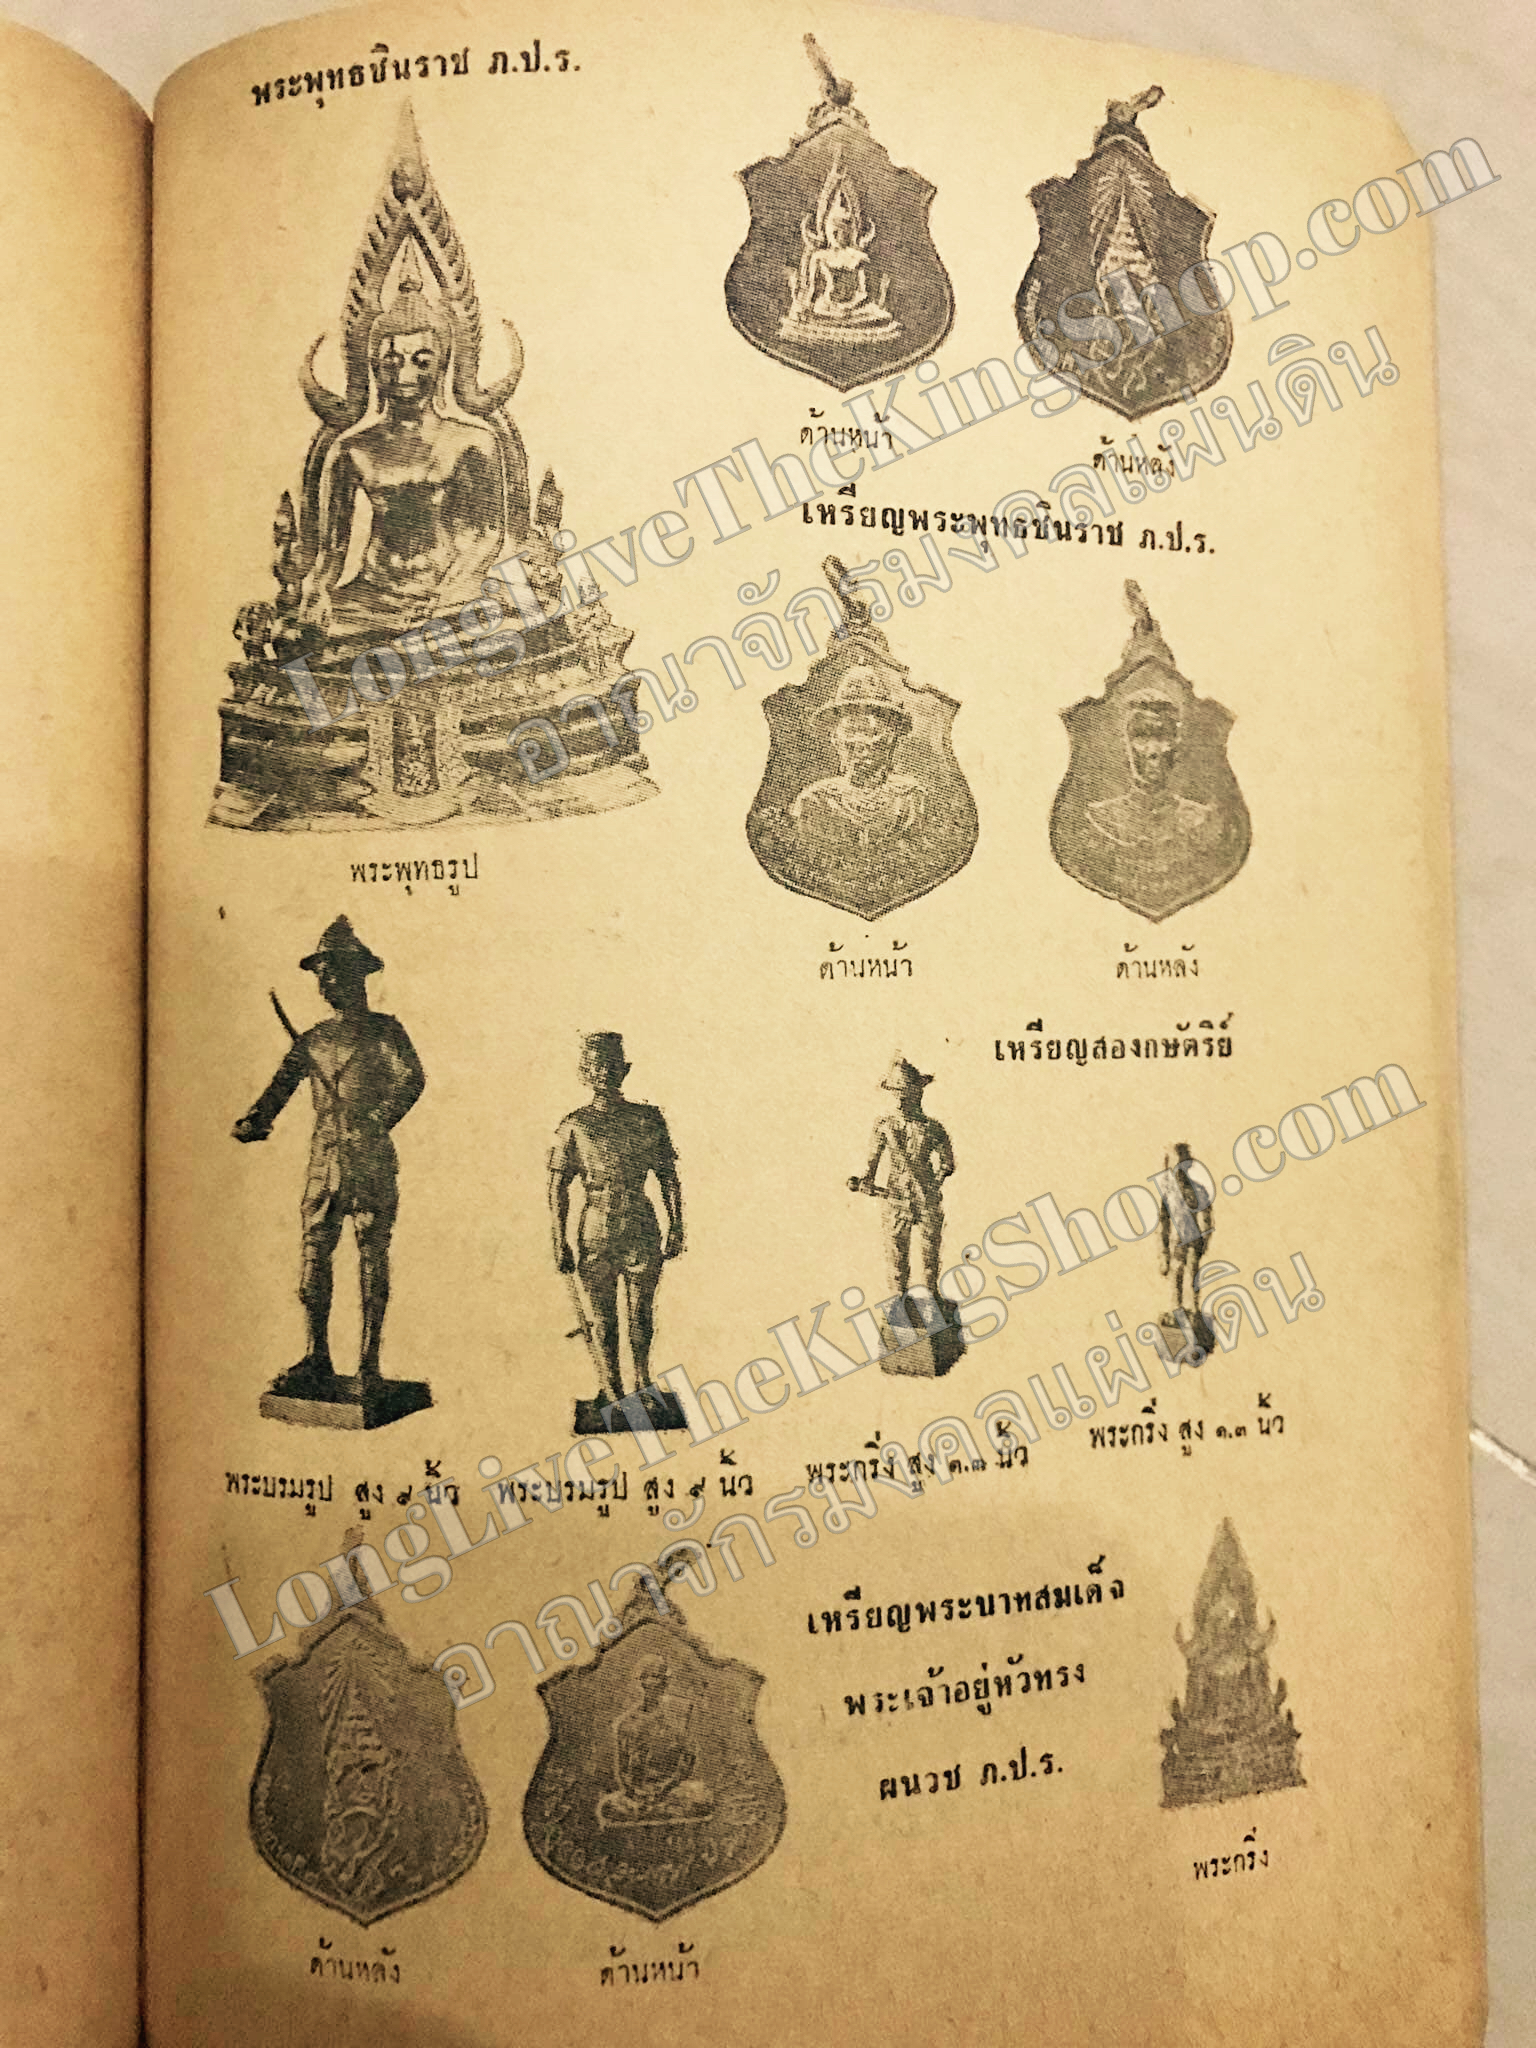 พระพุทธชินราช ภ.ป.ร.
ด้านหน้า
ด้านหลัง
เหรียญพระพุทธชินราช ภ.ป.ร.
พระพุทธรูป
ด้านหน้า
ด้านหลัง
เหรียญสองกษัตริย์
พระบรมรูป สูง ๙ นิ้ว
พระบรมรูป สูง ๙ นิ้ว
พระกริ่ง สูง ๑.๓ นิ้ว
พระกริ่ง สูง ๑.๓ นิ้ว
เหรียญพระบาทสมเด็จ
พระเจ้าอยู่หัวทรง
ผนวช ภ.ป.ร.
พระกริ่ง
ด้านหลัง
ด้านหน้า
LongLiveTheKingShop.com
อาณาจักรมงคลแผ่นดิน
LongLiveTheKingShop.com
อาณาจักรมงคลแผ่นดิน